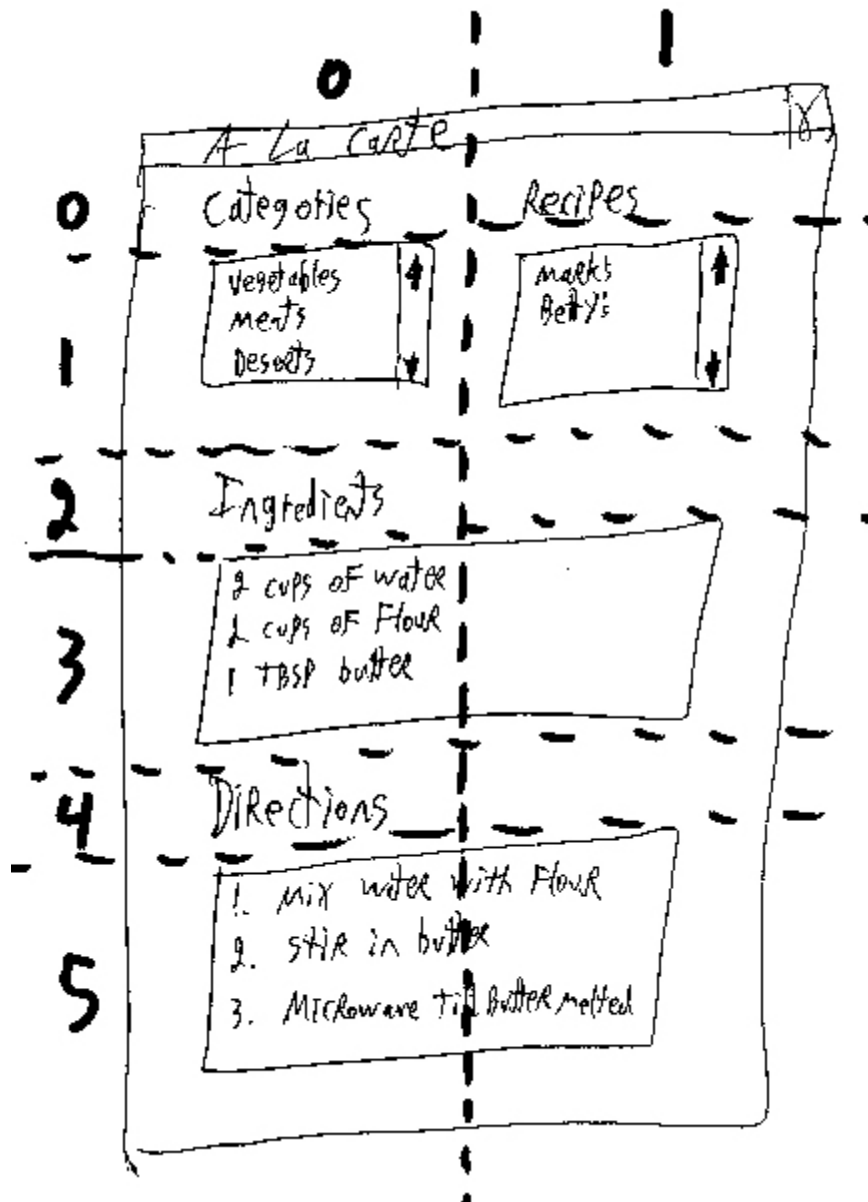 0 1
A La Carte X
0 Categories Recipes
1
Vegetables
Meats
Deserts
Marks
Betty's
2 Ingredients
3
2 cups of water
2 cups of Flour
1 TBSP butter
4 Directions
5
1. Mix water with Flour
2. Stir in butter
3. Microwave till Butter melted